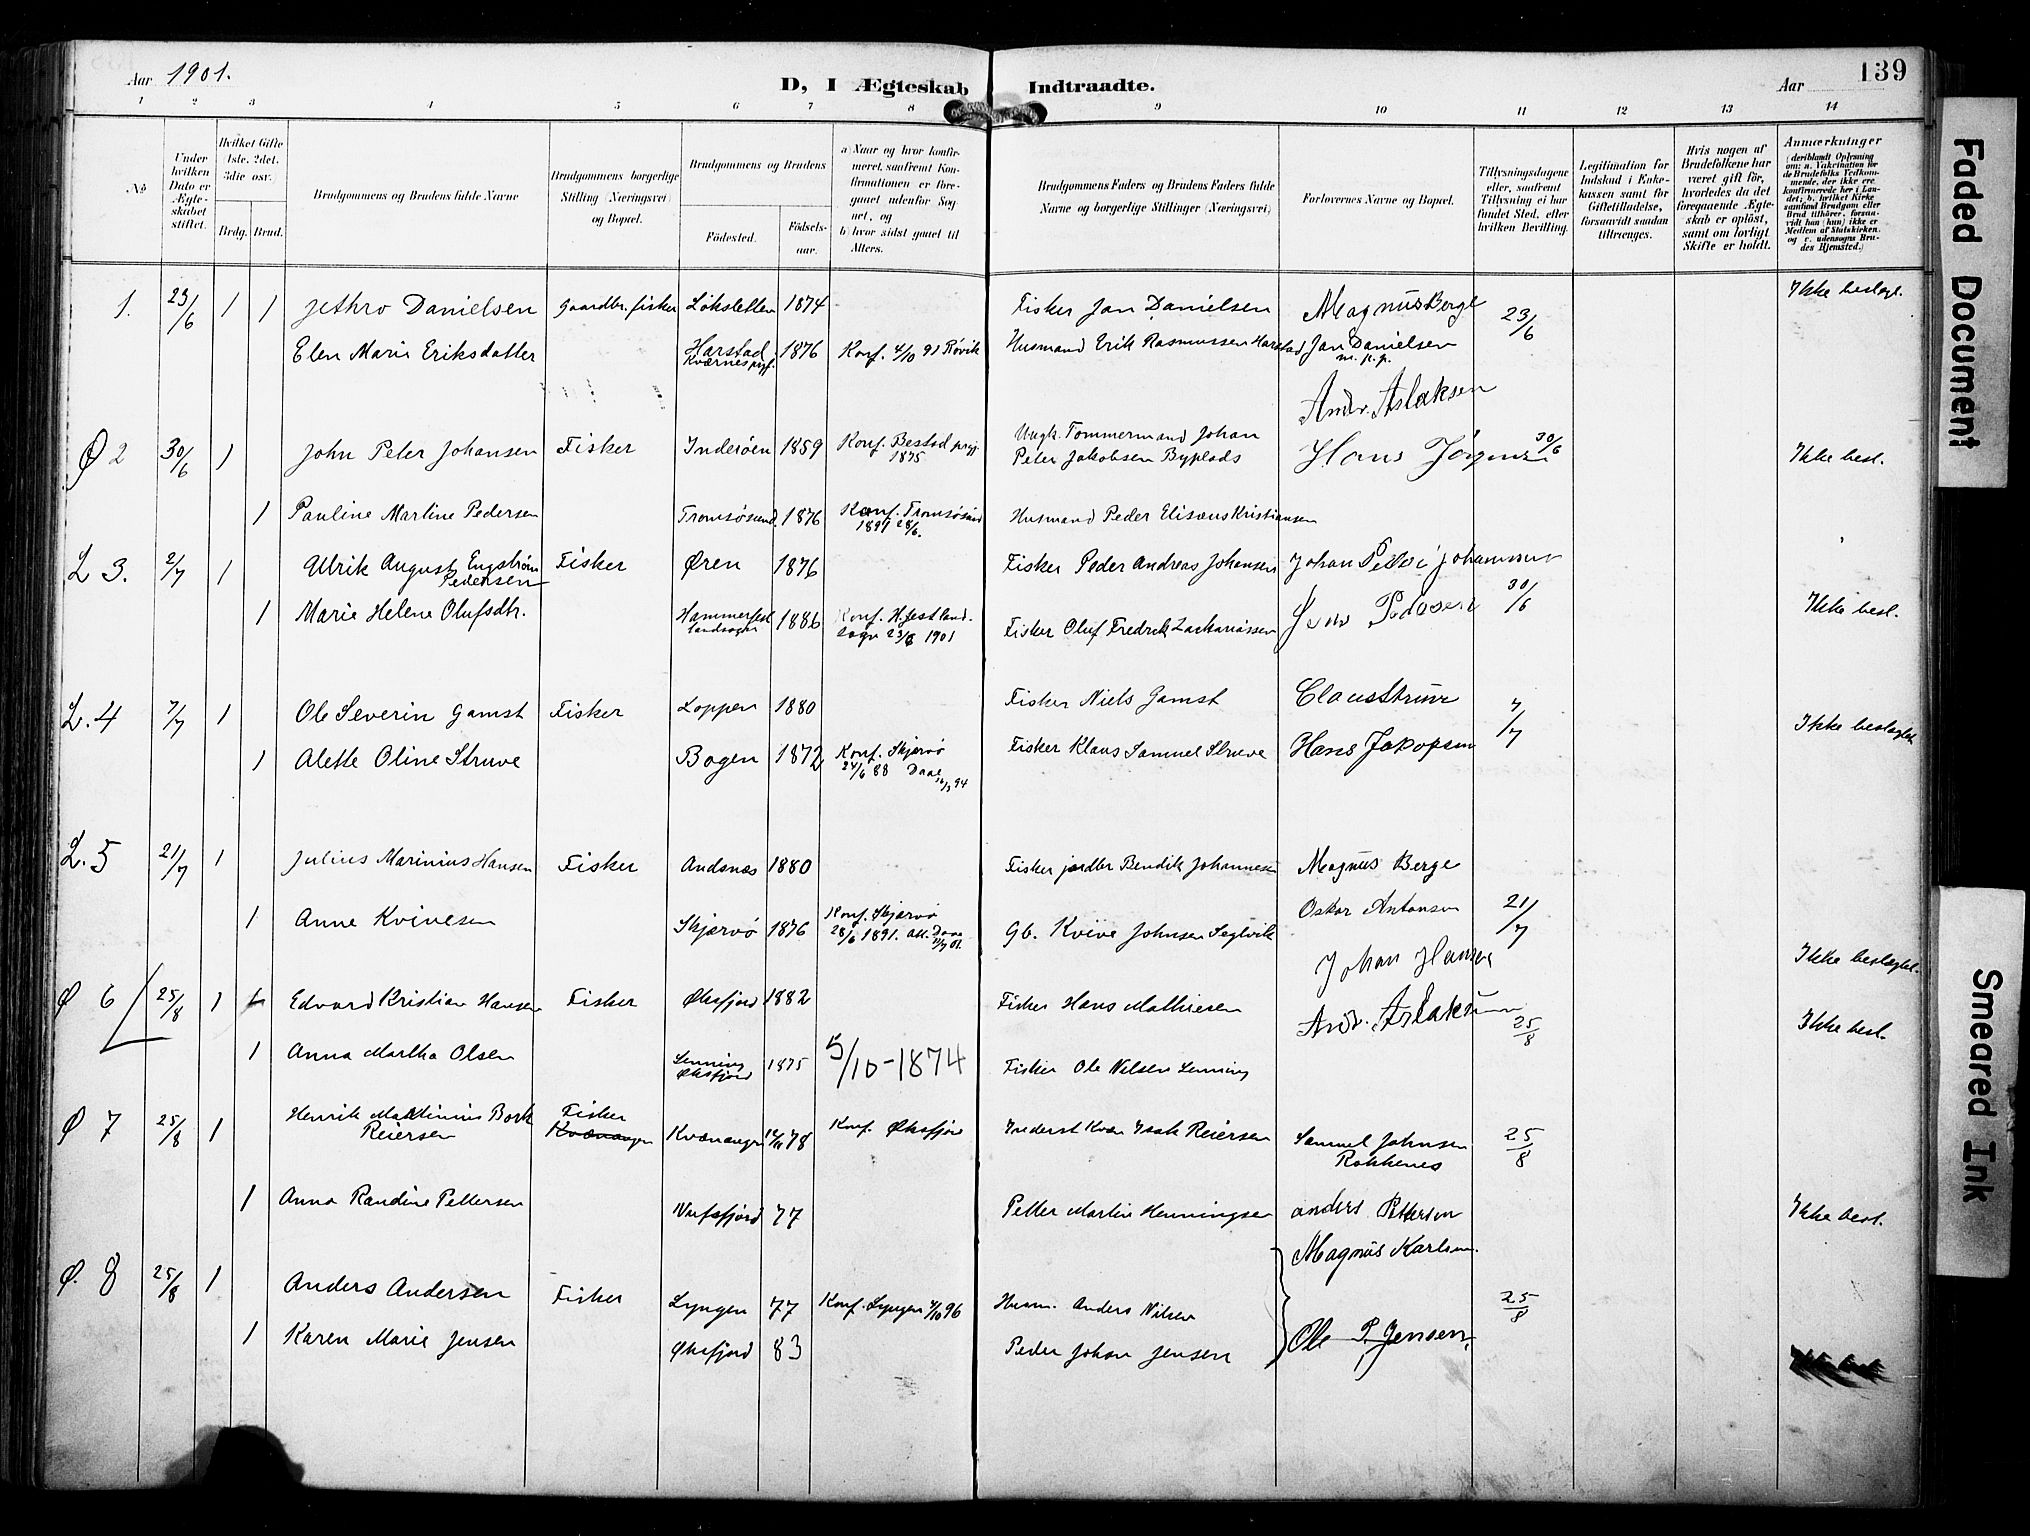 Aar 1901.
D, I Ægteskab Indtraadte.
Aar 139
1 2 3 4 5 6 7 8 9 10 11 12 13 14
No
Under hvilken Dato er Ægteskabet stiftet.
Hvilket Gifte 1ste, 2det, 3die osv.
Brdg. Brud.
Brudgommens og Brudens fulde Navne
Brudgommens borgerlige Stilling (Næringsvei) og Bopæl.
Brudgommens og Brudens
Fødested. Fødselsaar.
a) Naar og hvor konfirmeret, saafremt Konfirmationen er foregaaet udenfor Sognet, og
b) hvor sidst gaaet til Alters.
Brudgommens Faders og Brudens Faders fulde Navne og borgerlige Stillinger (Næringsvei)
Forlovernes Navne og Bopæl.
Tillysningsdagene eller, saafremt Tillysning ei har fundet Sted, efter hvilken Bevilling.
Legitimation for Indskud i Enkekassen samt for Giftetilladelse, forsaavidt saadan tiltrænges.
Hvis nogen af Brudefolkene har været gift før, hvorledes da det foregaaende Ægteskab er opløst, samt om lovligt Skifte er holdt.
Anmærkninger
(deriblandt Oplysning om: a. Vakcination for de Brudefolks Vedkommende, der ikke ere konfirmerede her i Landet; b. hvilket Kirkesamfund Brudgom eller Brud tilhører, forsaavidt han (hun) ikke er Medlem af Statskirken, og c. udensogns Brudes Hjemsted.)
1. 23/6 1 1 Jethro Danielsen Gaardbr. fisker Loksletten 1874 Fisker Jan Danielsen Magnus Berge 23/6 Ikke beslægt.
Elen Marie Eriksdatter Harstad Kværnes prgj. 1876 Konf. 4/10 91 Røvik Husmand Erik Rasmussen Harstad Jan Danielsen
m. p. p.
Andr. Aslaksen
Ø 2 30/6 1 John Peter Johansen Fisker Inderøen 1859 Konf. Bestad prgj. 1875 Ungk. Tømmermand Johan Peter Jakobsen Byplads Hans Jørgensen 30/6 Ikke besl.
1 Pauline Martine Pedersen Tromsøsund 1876 Konf. Tromsøsund 1891 28/6. Husmand Peder Elisæus Kristiansen
L 3. 2/7 1 Ulrik August Engstrøm Pedersen Fisker Øren 1876 Fisker Peder Andreas Johansen Johan Peder Johannsen
1 Marie Helene Olufsdtr. Hammerfest landsogn 1886 Konf. H.fest landsogn 23/6 1901 Fisker Oluf Fredrik Zachariassen Pedersen 30/6 Ikke besl.
L. 4 7/7 1 Ole Severin Gamst Fisker Loppen 1880 Fisker Niels Gamst Claus Struve 7/7 Ikke beslægtet
1 Alette Oline Struve Bogen 1872 Konf. Skjervø 24/6 88 Daae 94 Fisker Klaus Samuel Struve Hans Jakopsen
L. 5 21/7 1 Julius Marinius Hansen Fisker Andsnæs 1880 Fisker jordbr Bendik Johannesen Magnus Berge
Oskar Antonsen 21/7
1 Anne Kvivesen Skjærvø 1876 Konf. Skjærvø 28/6 1891. Alt. Daae Gb. Kvive Johnsen Seglvik
Johan Hansen Ikke beslægtet.
Ø 6 25/8 1 Edvard Kristian Hansen Fisker Øksfjord 1882 Fisker Hans Mathiesen Andr. Aslaksen 25/8 Ikke besl.
1 Anna Martha Olsen Lenning Øksfjord 1875 5/10-1874 Fisker Ole Nilsen Lenning
Ø 7 25/8 1 Henrik Martinius Bork Reiersen Fisker Kvænangen Kvænangen 78 Konf. Øksfjord Inderst Kvæn Isak Reiersen Samuel Johnsen Rokkenes 25/8
1 Anna Randine Pettersen Nufsfjord 77 Petter Martin Henningsen anders Pettersen Ikke besl.
Magnus Karlsen.
Ø. 8 25/8 1 Anders Andersen Fisker Lyngen 77 Konf. Lyngen 4/10 96 Husm. Anders Nilsen 25/8
1 Karen Marie Jensen Øksfjord 83 Peder Johan Jensen Ole P. Jensen
Faded Document
Smeared Ink